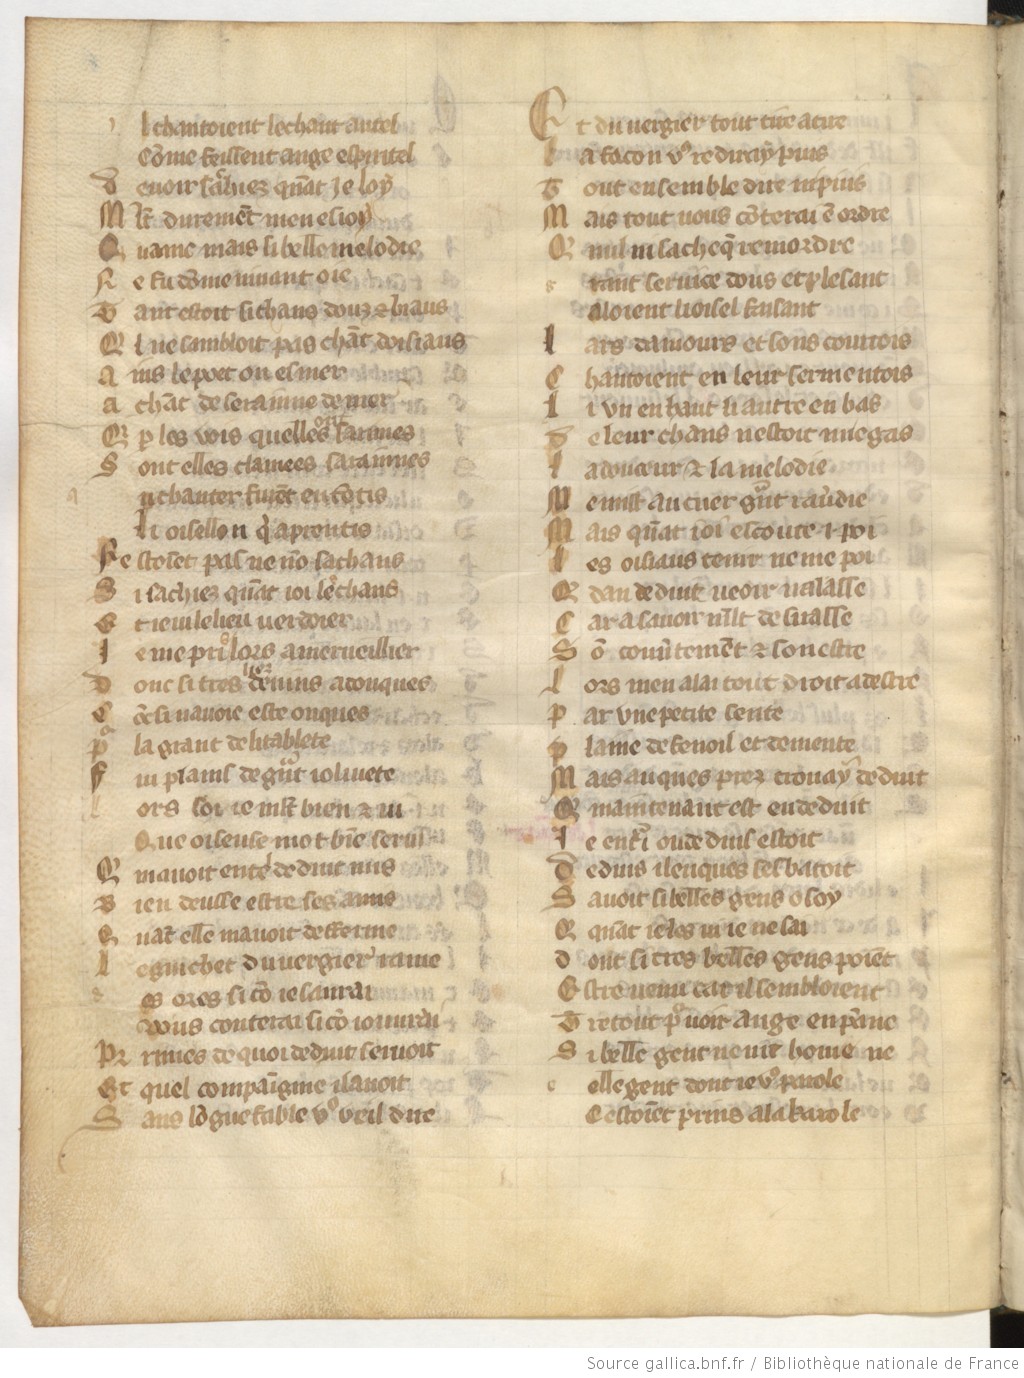 l chantoient le chant autel
Cōme feissent ange espiritel
d e voir sachiez qn̄at je loy
M lt̄ duremēt men esioy
Q uame mais si belle melodie
N e fu dōme viuant oie
T ant estoit si chans douz & biaus
Q l ne sambloit pas chāt doisiaus
A ins le poet on esmer
a chāt de seraine de mer
Q p les vois quelles ont saraines
S ont elles clamees saraines
a chanter furēt ententis
li oisellon q̄ aprentis
N estoiēt pas ne nō sachans
S i sachiez qn̄at ioi le chans
E t ie vi le lieu verdoier
I e me pris lors a merueillier
D onc si tres deuins adonques
Q̄ ensi nauoie este onques
p la grant delitablete
F ui plains de gn̄t ioliuete
l ors soi ie mlt̄ bien & vi
Que oiseuse mot biē serui
Q mauoit ente de duit mis
B ien deusse estre ses amis
Q uāt elle mauoit deffermé
l e guichet du vergier rame
D ores si cō ie saurai
vous conterai si cō iouurai
Pr rimes de quoi deduit seruoit
Et quel compaīgnie il auoit
S ans lōgue fable vꝰ veil dire
E t du vergier tout tire a tire
l a facon vꝰ rediray puis
T out ensemble dire ni puis
M ais tout vous cōterai ē ordre
Q nul ni sache q̄ remordre
G rant seruice dous et plesant
aloient li oisel faisant
l ais damours et sons courtois
C hantoient en leur sermentois
l i vn en haut li autre en bas
d e leur chans nestoit mie gas
l a doucour & la melodie
M e mist au cuer gn̄t rauerdie
M ais qn̄at ioi escoute .i. poi
l es oisiaus tenir ne me poi
Q dan deduit veoir nalasse
C ar a sauoir mlt̄ desirasse
S ō contenemēt & son estre
l ors men alai tout droit a destre
p ar vne petite sente
p laine de fenoil et de mente
M ais auques prez trouay deduit
Q maintenant est en deduit
I e entri ou deduis estoit
D eduis ilenques sesbatoit
S auoit si belles gens o soy
Q quāt ie les vi ie ne sai
d ont si tres belles gens poiēt
E stre venu car il sembloient
T retout pꝰ voir ange enpāne
S i belle gent ne vit home ne
c elle gent dont ie vꝰ parole
Cestoiēt prins a la karole